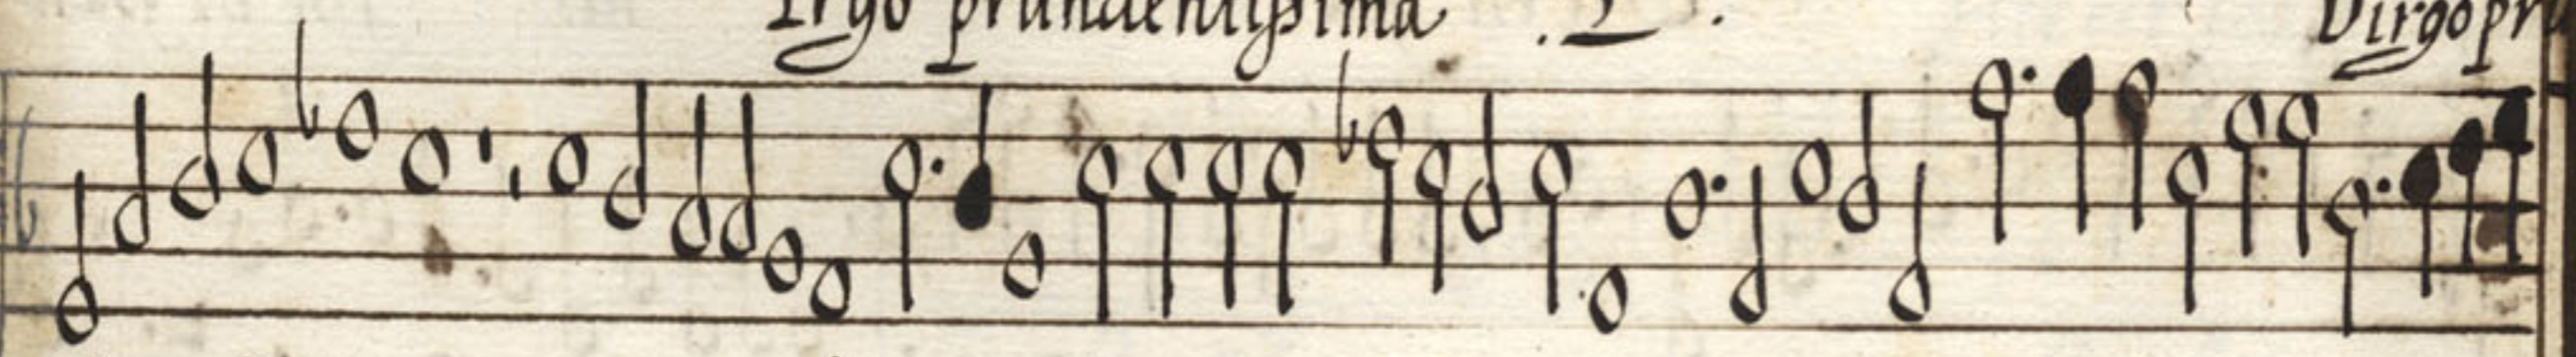 Irgo prundentissima . 2 . Virgo pru